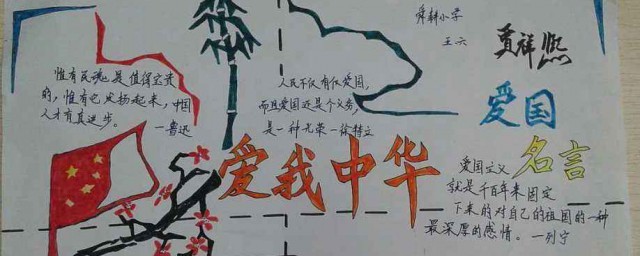 惟有民魂是值得宝贵
的，惟有它发扬起来，中国
人才有真进步。
—鲁迅
人民不仅有权爱国，
而且爱国还是个义务，
是一种光荣—徐特立
舜耕小学
爱国
名言
爱我中华
爱国主义
就是千百年来固定
下来的对自己的祖国的一种
最深厚的感情。—列宁